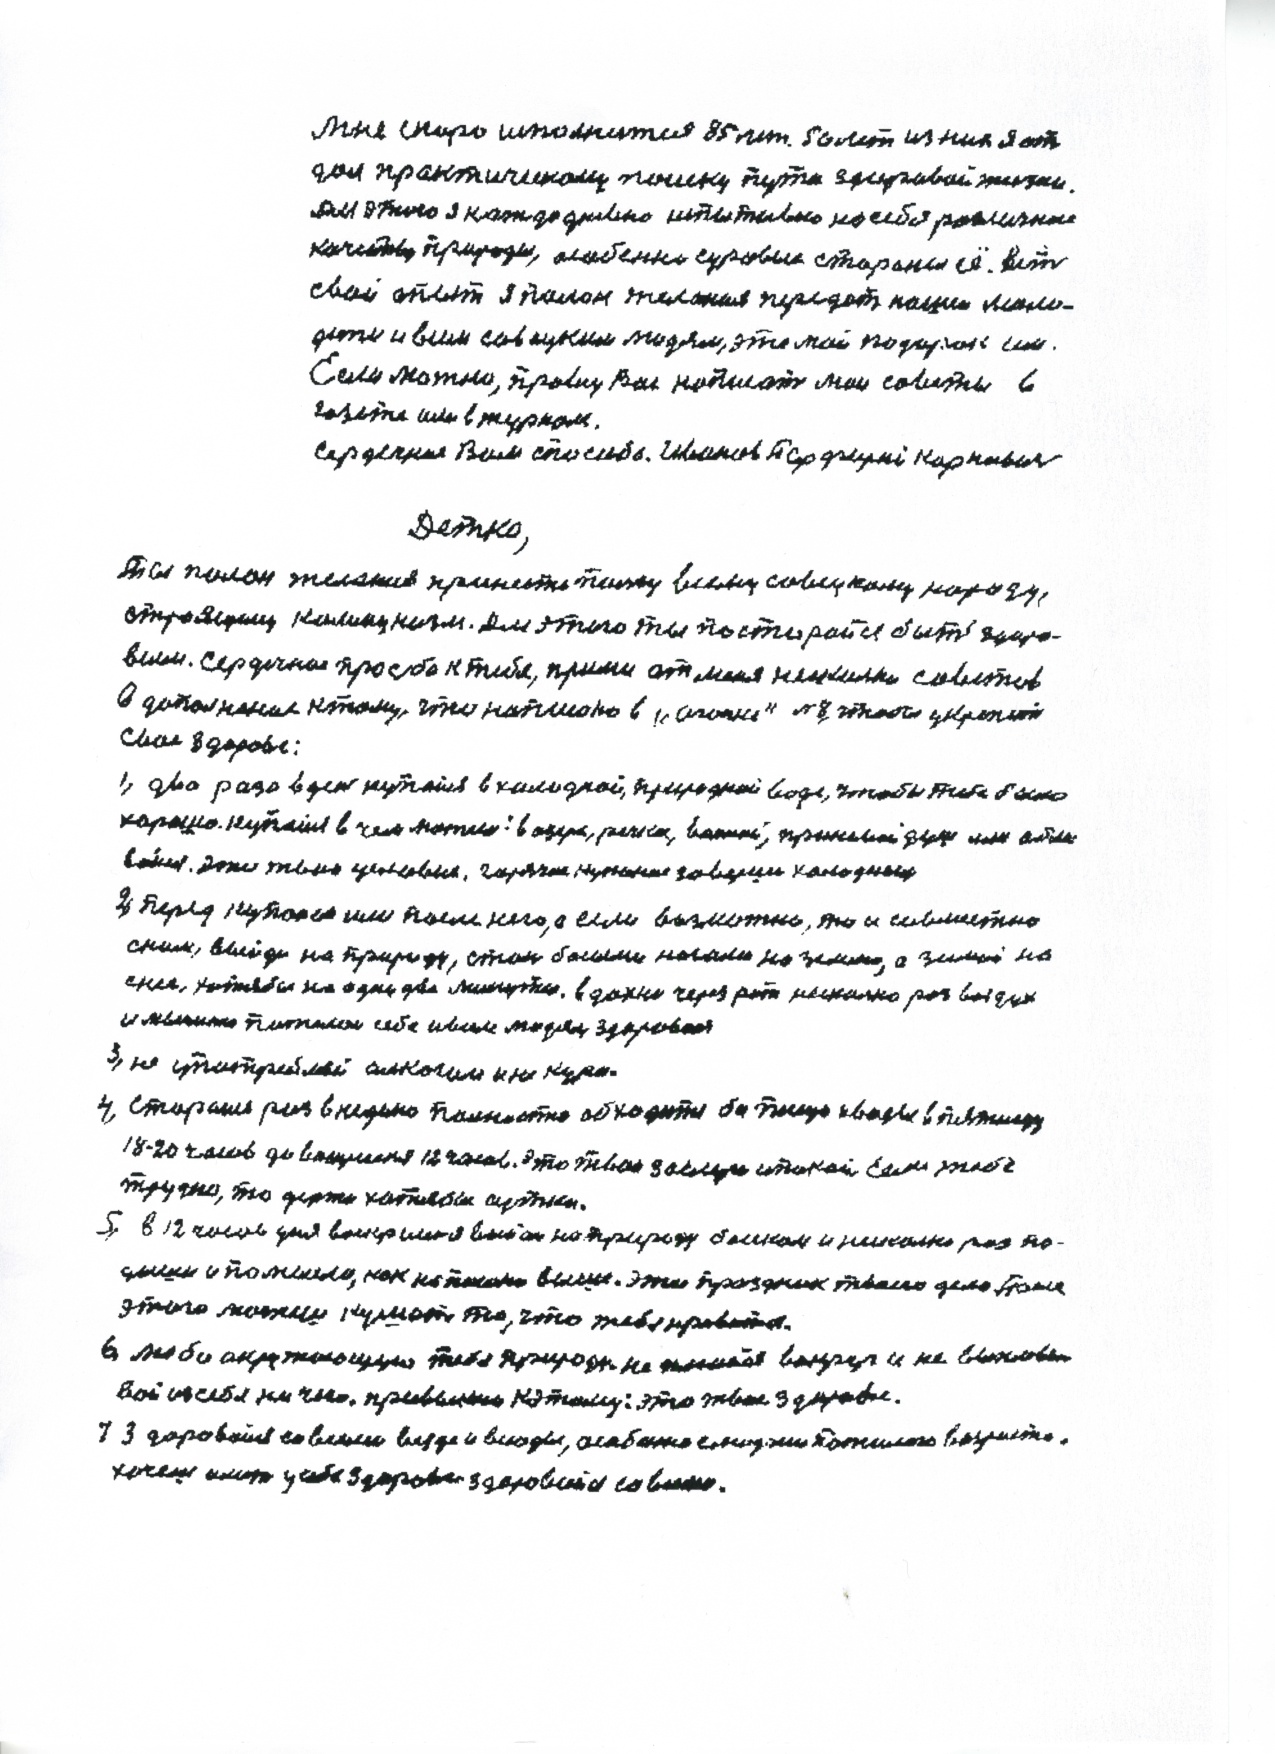 Мне скоро исполнится 85 лет. 50 лет из них я от
дал практическому поиску пути здоровой жизни.
Для этого я каждодневно испытываю на себя различные
качества природы, особенно суровые стороны её. Весь
свой опыт я полон желания передать нашей моло-
дёжи и всем совецким людям, это мой подарок им.
Если можно, прошу Вас написать мои советы в
газете или в журнале.
Сердечное Вам спасибо. Иванов Порфирий Корневич
Детко,
Ты полон желания принести пользу всему совецкому народу,
строящему коммунизм. Для этого ты постарайся быть здоро-
вым. Сердечное просба к тебе, прими от меня несколко советов
в дополнение к тому, что написано в "Огонке" №8, чтобы укрепить
свое здоровье:
1, два раза в ден купайся в холодной, природной воде, чтобы тебе было
хорошо. купайся в чем можеш: в озере, речке, ванной, принимай душ или обли
вайся. Это твои условия. Горячее купание заверши холодным
2, Перед купанием или после него, а если возможно, то и совместно
с ним, выйди на природу, стан босыми ногами на землю, а зимой на
снег, хотябы на одну две минуты. вдохни через рот несколко раз воздух
и мыслено пожелай себе и всем людям здоровья
3, не употребляй алкоголя и не кури.
4, Старайся раз в неделю полностю обходится без пищи и воды в пятницу
18-20 часов до воскресеня 12 часов. Это твои заслуги и покой Если тебе
трудно, то держи хотябы сутки.
5, в 12 часов дня воскресеня выйди на природу босиком и несколко раз по-
дыши и помысли, как написано выше. Это праздник твоего дела После
этого можеш кушать то, что тебе нравится.
6, люби окружающую тебя природу. не плюйся вокруг и не выплевы
вай из себя ни чего. привыкни к этому: это твое здоровье.
7 Здоровайся со всеми везде и всюду, особенно с людми пожилого возраста.
хочеш иметь у себя здоровье здоровайся со всеми.